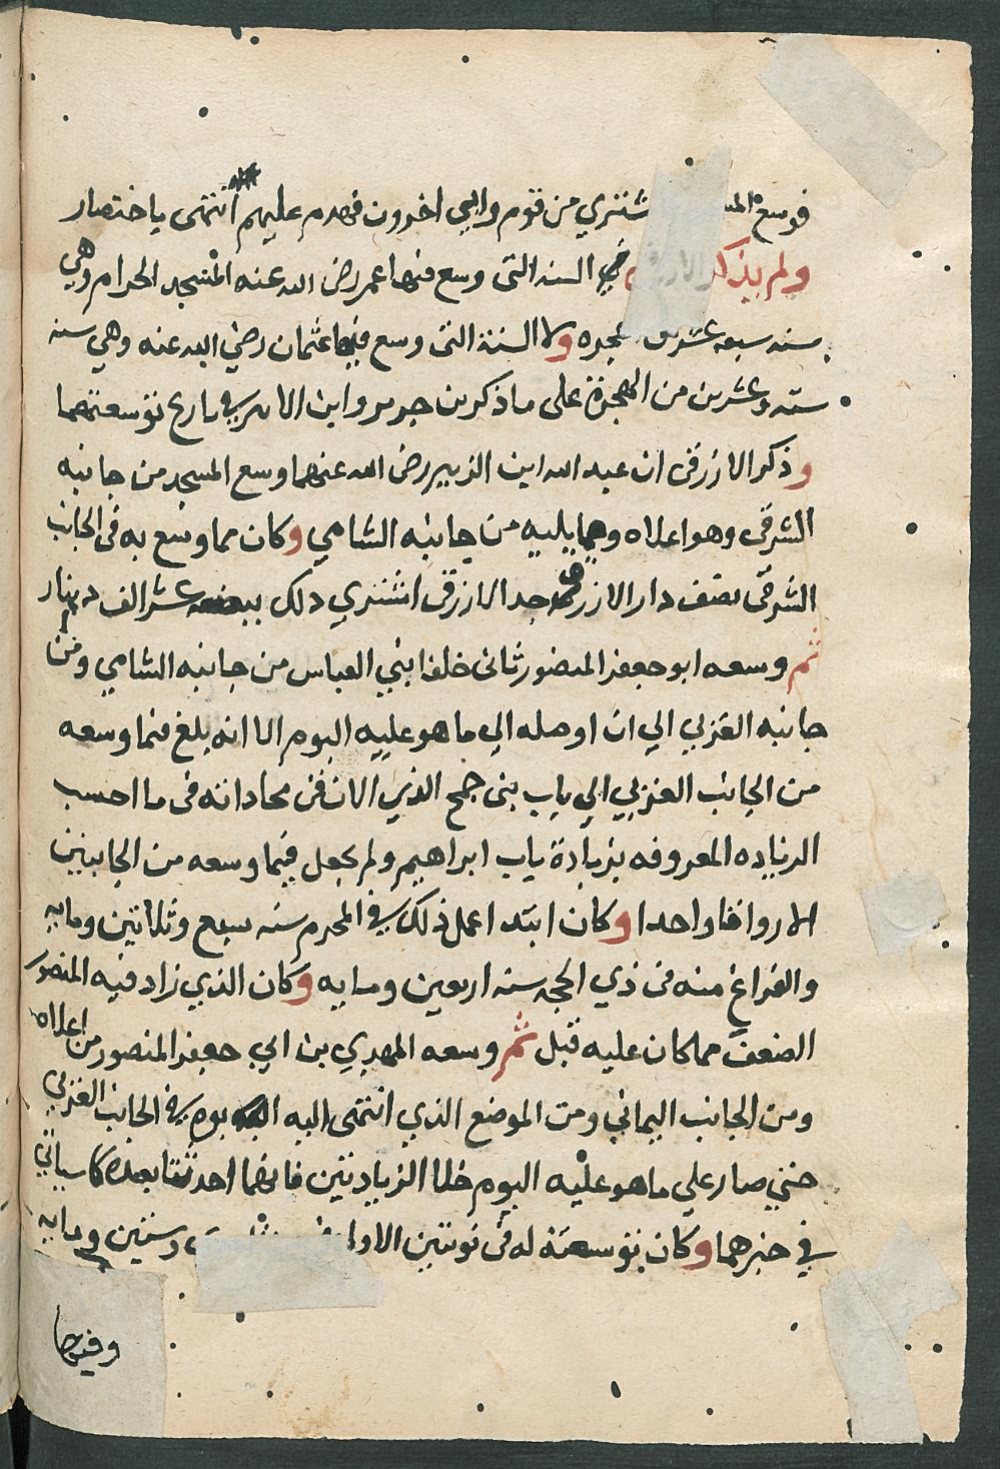 فوسع المس شتري من قوم وابي اخرون فهدم عليهم انتهى باختصار
ولم يذكر الازرقي السنه التى وسع فيها عمر رضى الله عنه المسجد الحرام وهي
سنه سبعه عشر من لهجره ولا السنة التى وسع فيها عثمان رضي الله عنه وهي سنه
سته وعشرين من الهجرة على ما ذكر بن جرير وابن الاثير في تاريخ توسعتهما
وذكر الازرقى ان عبد الله ابن الزبير رضى الله عنهما وسع المسجد من جانبه
الشرقى وهو اعلاه ومما يليه من جانبه الشامي وكان مما وسع به فى الجانب
الشرقى نصف دار الازرقى جد الازرقى اشتري ذلك ببضعه عشر الف دينار
ثم وسعه ابو جعفر المنصور ثانى خلفا بني العباس من جانبه الشامي ومن
جانبه الغربي الي ان اوصله الي ما هو عليه اليوم الا انه بلغ فيما وسعه
من الجانب الغربي الي باب بنى جمح الذي الان فى محاذاته فى ما احسب
الزياده المعروفه بزيادة باب ابراهيم ولم يجعل فيما وسعه من الجانبين
الا رواقا واحدا وكان ابتدا عمل ذلك في المحرم سنه سبع وثلاثين ومايه
والفراغ منه فى ذي الحجه سنه اربعين ومايه وكان الذي زاد فيه المنصور
الضعف مما كان عليه قبل ثم وسعه المهدي بن ابي جعفر المنصور من اعلاه
ومن الجانب اليماني ومن الموضع الذي انتهى اليه ابوه في الجانب الغربي
حتي صار علي ما هو عليه اليوم خلا الزيادتين فانهما احدثتا بعده كما سياتي
في خبرهما وكان توسعته له فى نوبتين الاولى وستين ومايه
وفيها